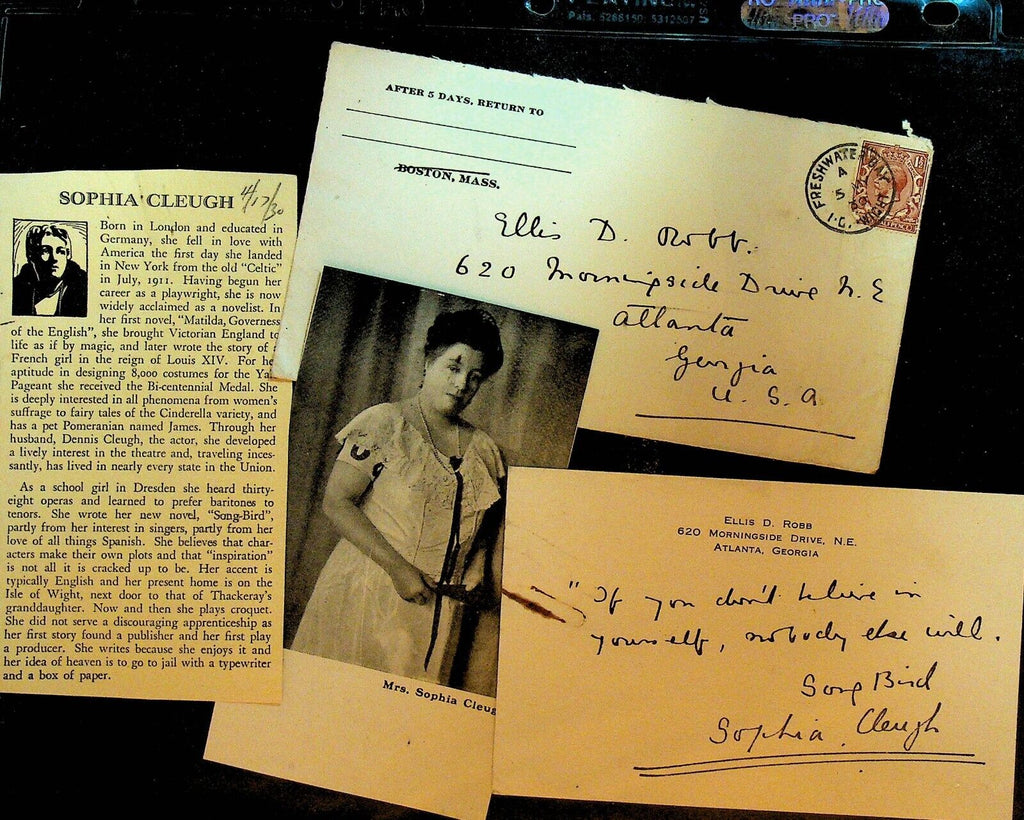 Pats. 5266150; 5312507
PRO
SOPHIA CLEUGH
4/17/30
Born in London and educated in
Germany, she fell in love with
America the first day she landed
in New York from the old "Celtic"
in July, 1911. Having begun her
career as a playwright, she is now
widely acclaimed as a novelist. In
her first novel, "Matilda, Governess
of the English", she brought Victorian England to
life as if by magic, and later wrote the story of a
French girl in the reign of Louis XIV. For he
aptitude in designing 8,000 costumes for the Ya
Pageant she received the Bi-centennial Medal. She
is deeply interested in all phenomena from women's
suffrage to fairy tales of the Cinderella variety, and
has a pet Pomeranian named James. Through her
husband, Dennis Cleugh, the actor, she developed
a lively interest in the theatre and, traveling inces-
santly, has lived in nearly every state in the Union.
As a school girl in Dresden she heard thirty-
eight operas and learned to prefer baritones to
tenors. She wrote her new novel, "Song-Bird",
partly from her interest in singers, partly from her
love of all things Spanish. She believes that char-
acters make their own plots and that "inspiration"
is not all it is cracked up to be. Her accent is
typically English and her present home is on the
Isle of Wight, next door to that of Thackeray's
granddaughter. Now and then she plays croquet.
She did not serve a discouraging apprenticeship as
her first story found a publisher and her first play
a producer. She writes because she enjoys it and
her idea of heaven is to go to jail with a typewriter
and a box of paper.
AFTER 5 DAYS, RETURN TO
BOSTON, MASS.
FRESHWATER BAY
I.O. WIGHT
Ellis D. Robb.
620 Morningside Drive N.E
Atlanta
Georgia
U.S.A
Mrs. Sophia Cleug
ELLIS D. ROBB
620 MORNINGSIDE DRIVE, N.E.
ATLANTA, GEORGIA
"If you don't believe in
yourself, nobody else will.
Song Bird
Sophia Cleugh